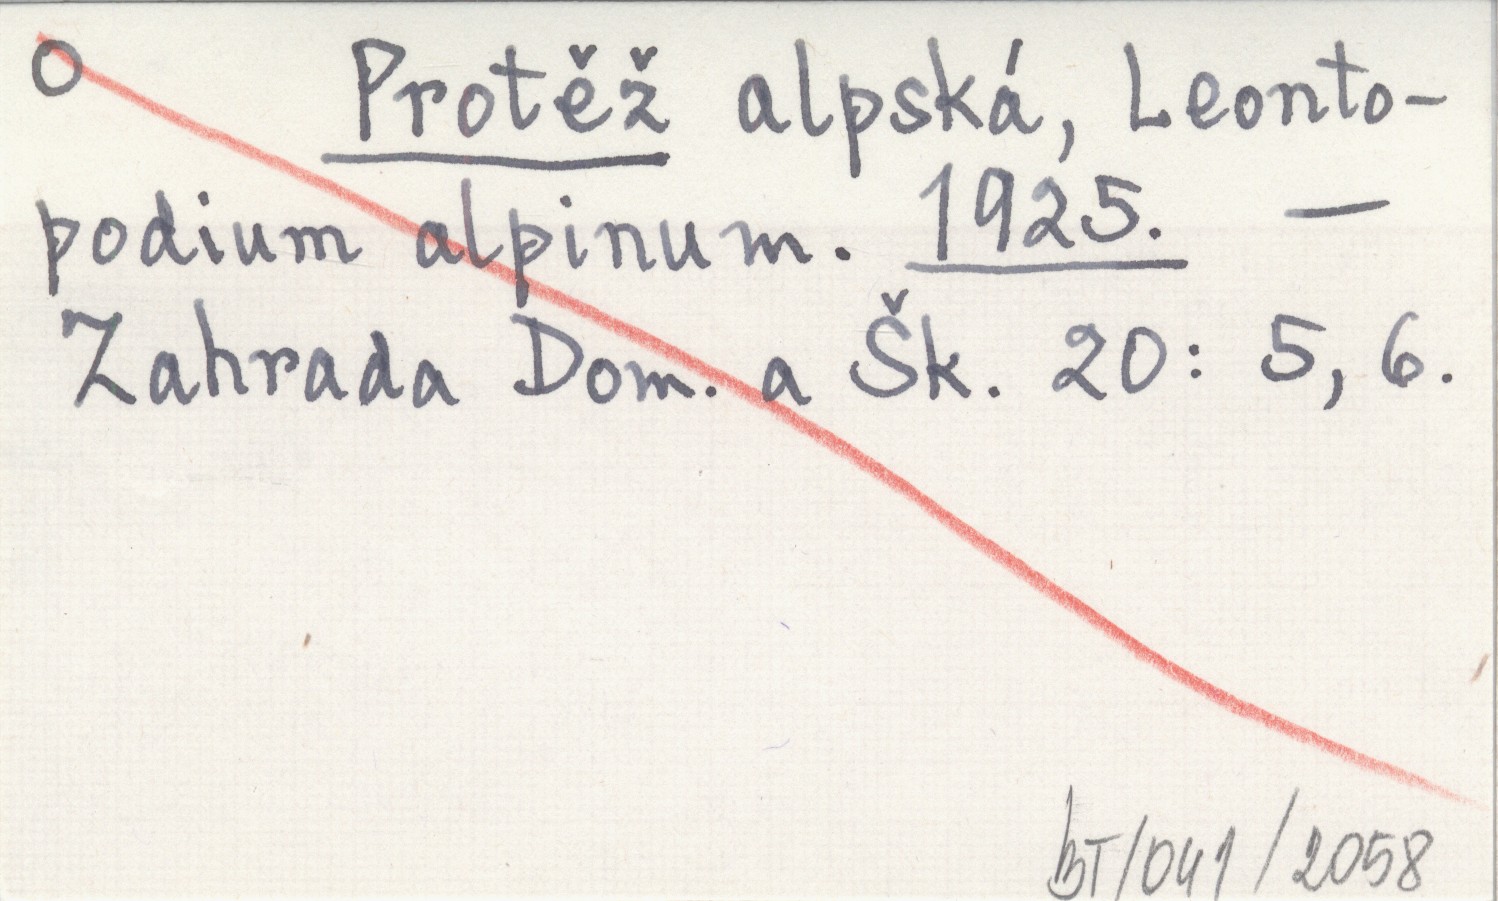 O Protěž alpská, Leonto-
podium alpinum. 1925. —
Zahrada Dom. a Šk. 20: 5, 6.
BT/041/2058